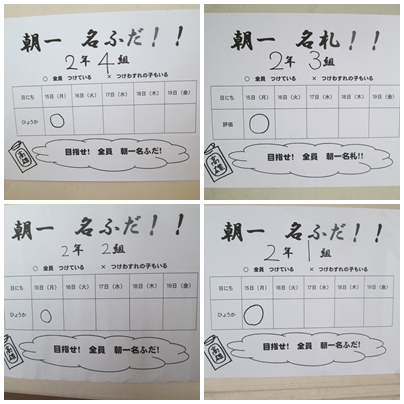 朝一 名ふだ！！
2年4組
○ 全員 つけている × つけわすれの子もいる
日にち 15日（月） 16日（火） 17日（水） 18日（木） 19日（金）
ひょうか ○
目指せ！ 全員 朝一名ふだ！
高雄
朝一 名札！！
2年3組
○ 全員 つけている × つけわすれの子もいる
日にち 15日（月） 16日（火） 17日（水） 18日（木） 19日（金）
評価 ○
目指せ! 全員 朝一名札!!
高雄
朝一 名ふだ！！
2年2組
○ 全員 つけている × つけわすれの子もいる
日にち 15日（月） 16日（火） 17日（水） 18日（木） 19日（金）
ひょうか ○
目指せ！ 全員 朝一名ふだ！
高雄
朝一 名ふだ！！
2年1組
○ 全員 つけている × つけわすれの子もいる
日にち 15日（月） 16日（火） 17日（水） 18日（木） 19日（金）
ひょうか ○
目指せ！ 全員 朝一名ふだ！
高雄